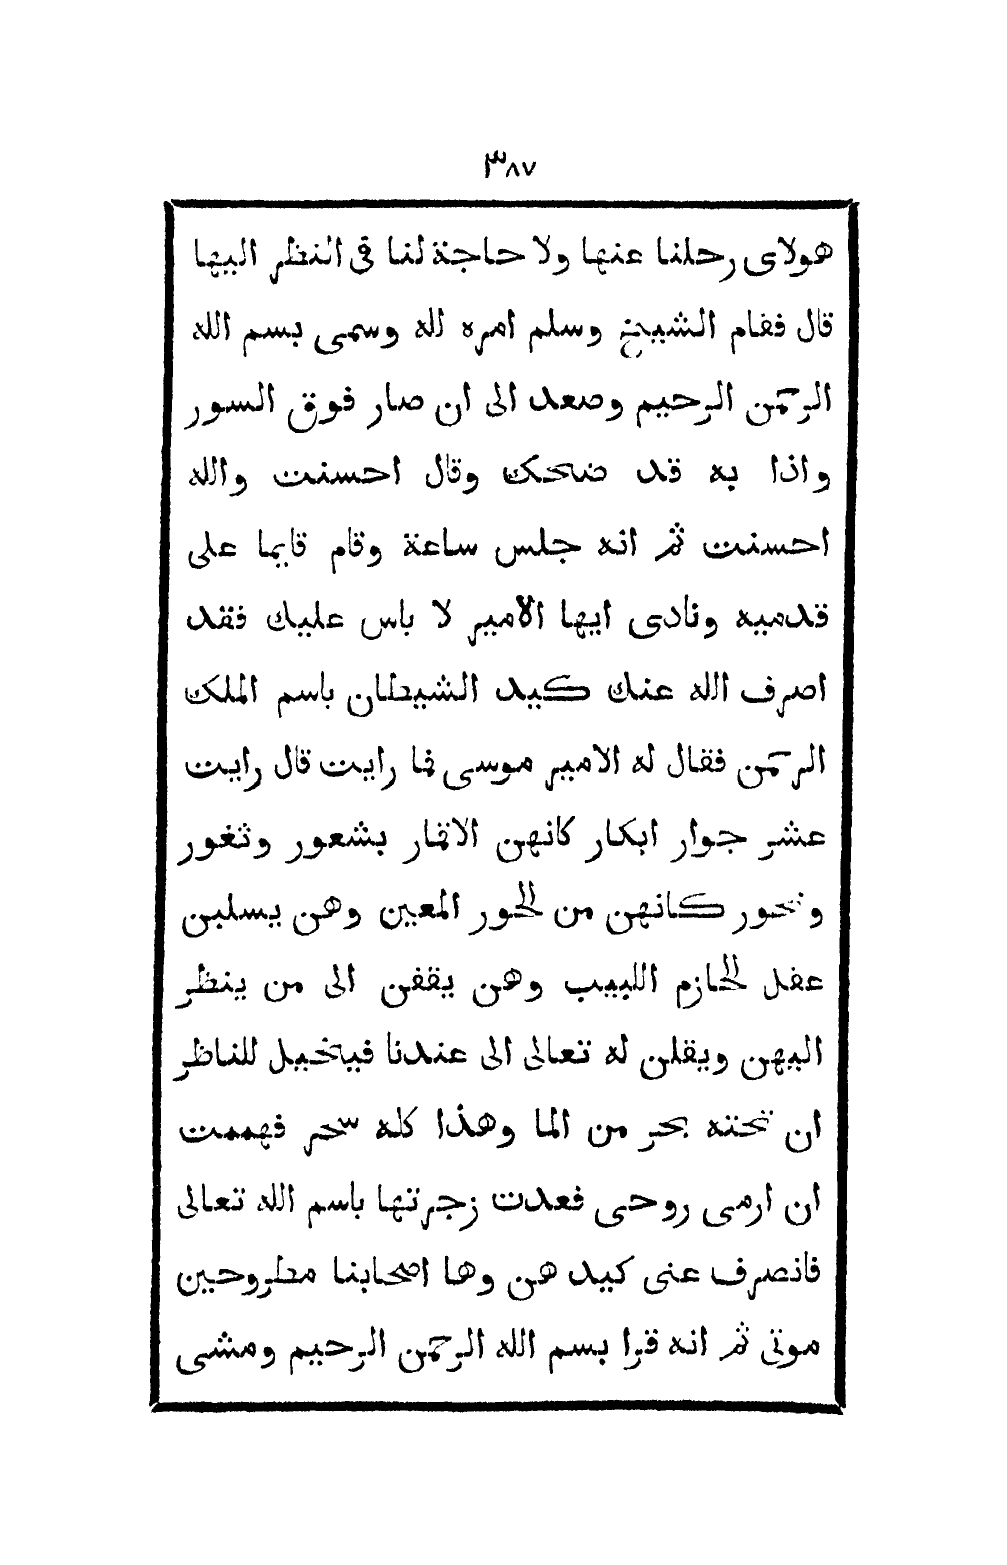 ٣٨٧
هولاى رحلنا عنها ولا حاجة لنا فى النظر اليها
قال فقام الشيخ وسلم امره لله وسمى بسم الله
الرحمن الرحيم وصعد الى ان صار فوق السور
واذا به قد ضحك وقال احسنت والله
احسنت ثم انه جلس ساعة وقام قايما على
قدميه ونادى ايها الامير لا باس عليك فقد
اصرف الله عنك كيد الشيطان باسم الملك
الرحمن فقال له الامير موسى فما رايت قال رايت
عشر جوار ابكار كانهن الاقمار بشعور وثغور
ونحور كانهن من الحور المعين وهن يسلبن
عقل الحازم اللبيب وهن يقفن الى من ينظر
اليهن ويقلن له تعالى الى عندنا فيتخيل للناظر
ان تحته بحر من الما وهذا كله سحر فهممت
ان ارمى روحى فعدت زجرتها باسم الله تعالى
فانصرف عنى كيد هن وها اصحابنا مطروحين
موتى ثم انه قرا بسم الله الرحمن الرحيم ومشى